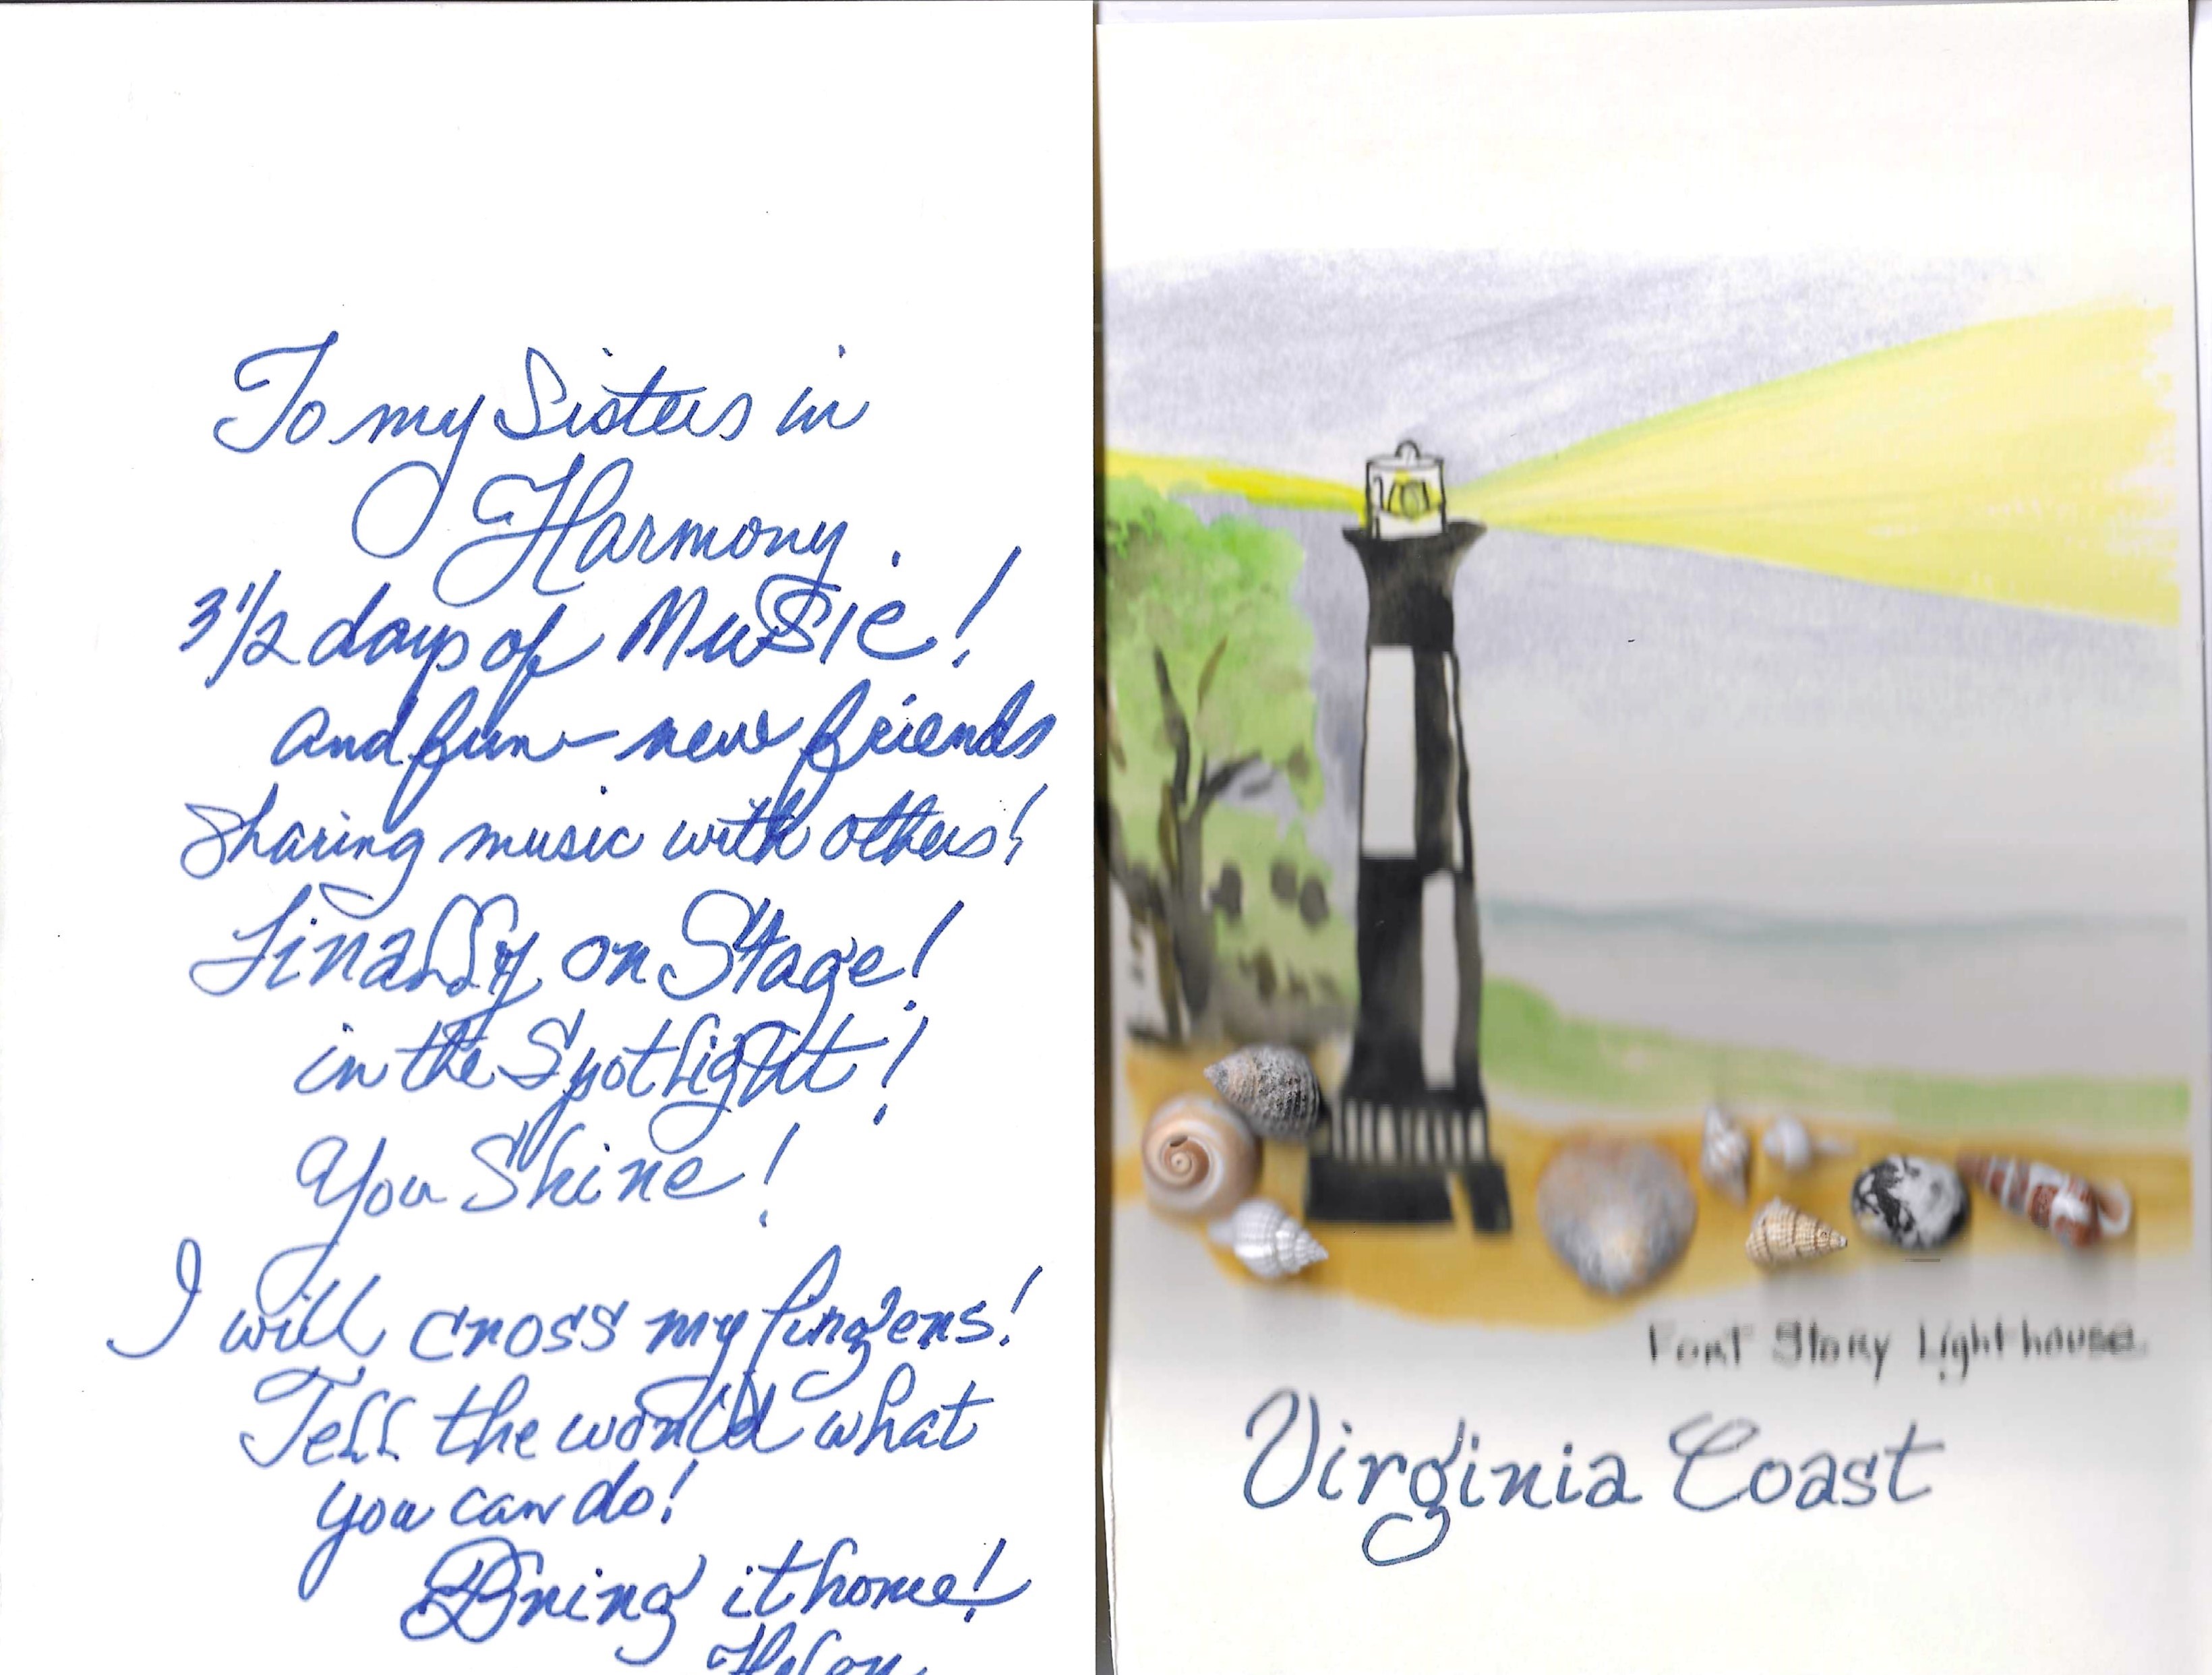 To my Sisters in
Harmony.
3 1/2 days of Music!
and fun - new friends
Sharing music with others!
Finally on Stage!
in the Spotlight!
You Shine!
I will cross my fingers!
Tell the world what
you can do!
Bring it home!
Helen
Fort Story Lighthouse
Virginia Coast